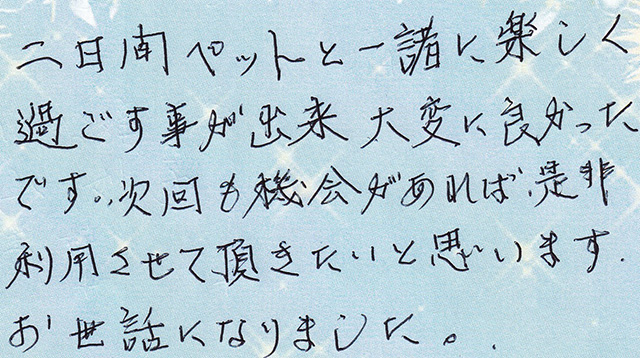 二日間ペットと一諸に楽しく
過ごす事が出来 大変に良かった
です。次回も機会があれば、是非
利用させて頂きたいと思います.
お世話になりました。